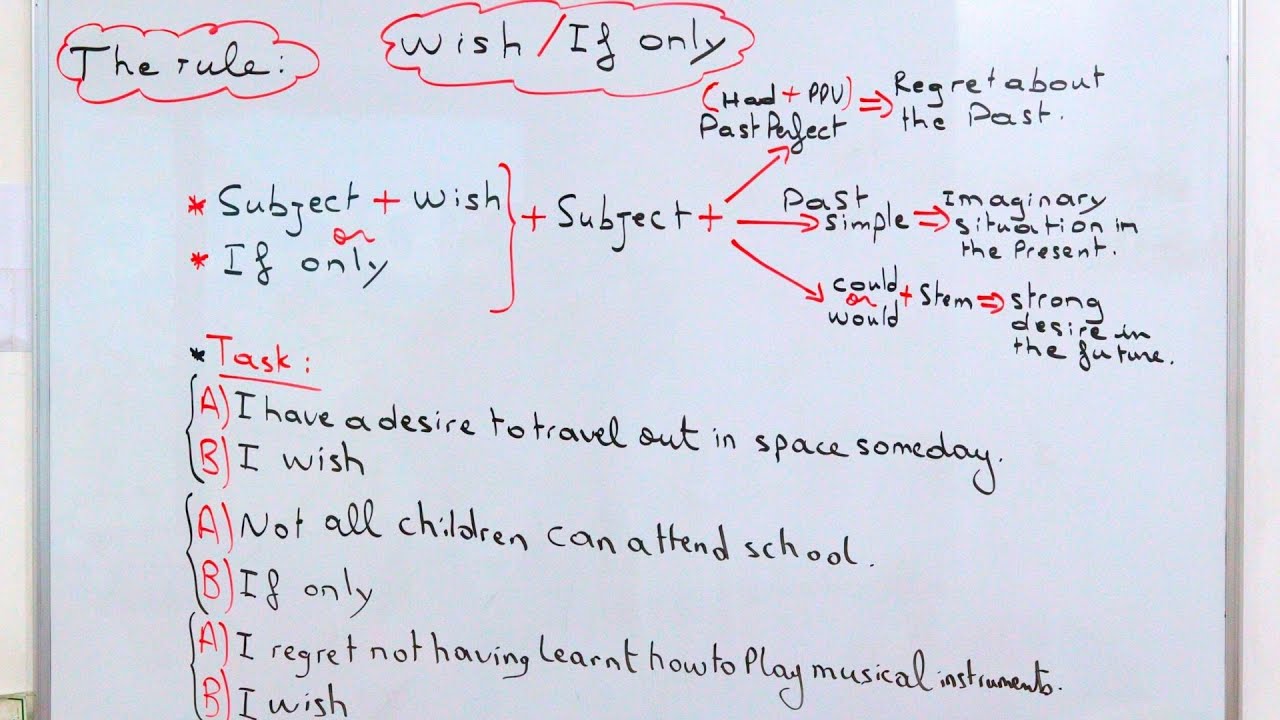 The rule:
Wish / If only
(Had + PPV) ⇒ Regret about
Past Perfect the Past.
* Subject + wish
or
* If only
+ Subject +
Past
simple ⇒ Imaginary
situation in
the Present.
could
or
would
+ Stem ⇒ strong
desire in
the future.
* Task:
A) I have a desire to travel out in space someday.
B) I wish
A) Not all children can attend school.
B) If only
A) I regret not having Learnt how to Play musical instruments.
B) I wish